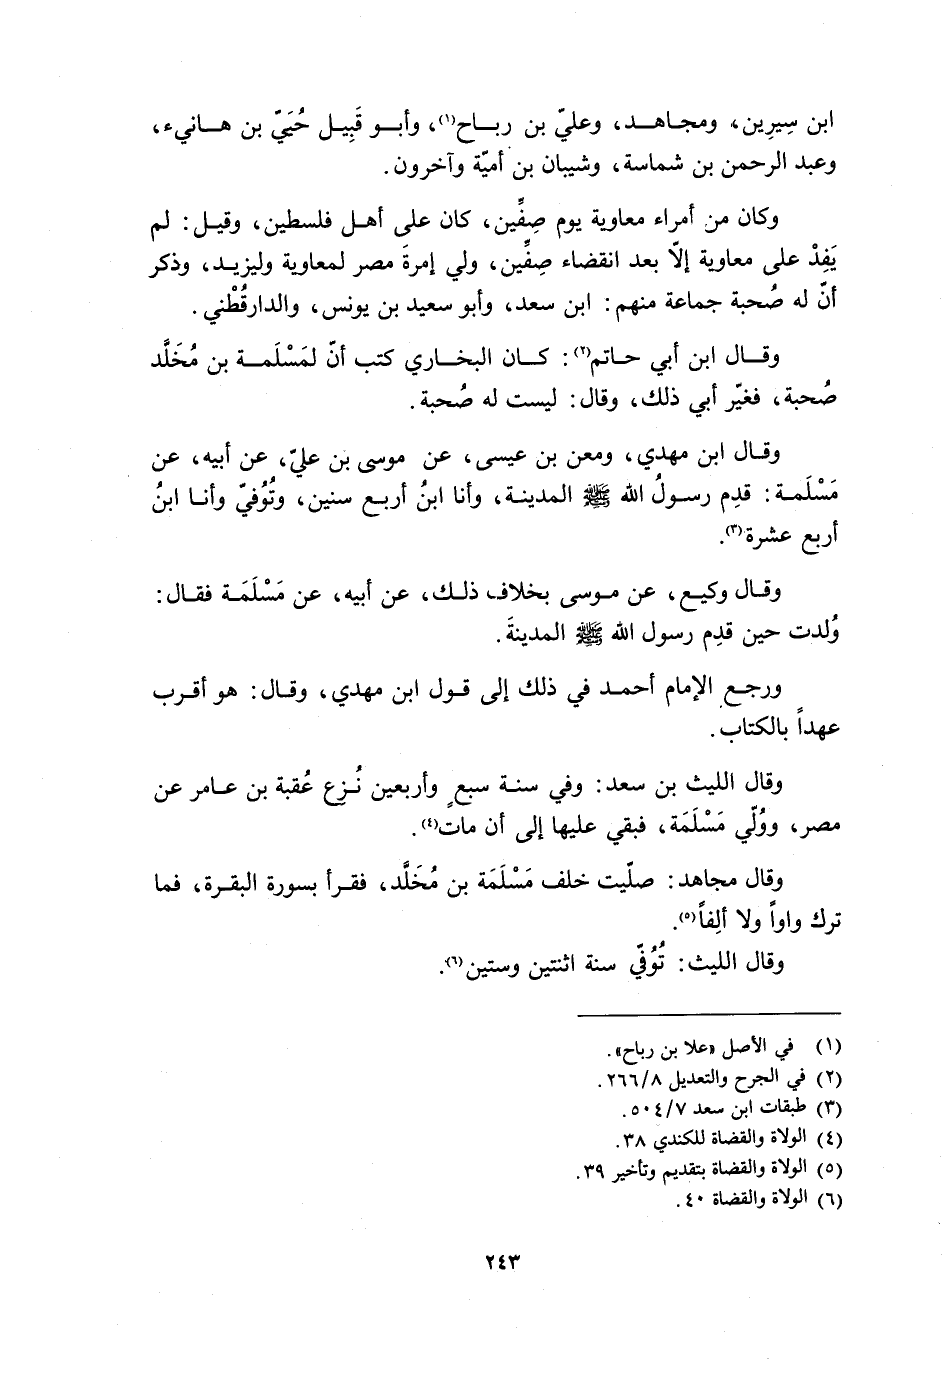 ابن سِيرِين، ومجاهد، وعليّ بن رباح(١)، وأبو قَبِيل حُيَيّ بن هانيء،
وعبد الرحمن بن شماسة، وشيبان بن أميّة وآخرون.
وكان من أمراء معاوية يوم صِفِّين، كان على أهل فلسطين، وقيل: لم
يَفِدْ على معاوية إلاّ بعد انقضاء صِفِّين، ولي إمرةَ مصر لمعاوية وليزيد، وذكر
أنّ له صُحبة جماعة منهم: ابن سعد، وأبو سعيد بن يونس، والدارقُطْني.
وقال ابن أبي حاتم(٢): كان البخاري كتب أنّ لمَسْلَمة بن مُخَلَّد
صُحبة، فغيّر أبي ذلك، وقال: ليست له صُحبة.
وقال ابن مهدي، ومعن بن عيسى، عن موسى بن عليّ، عن أبيه، عن
مَسْلَمة: قدِم رسولُ الله ﷺ المدينة، وأنا ابنُ أربع سنين، وتُوُفيّ وأنا ابنُ
أربع عشرة(٣).
وقال وكيع، عن موسى بخلاف ذلك، عن أبيه، عن مَسْلَمَة فقال:
وُلدت حين قدِم رسول الله ﷺ المدينةَ.
ورجع الإمام أحمد في ذلك إلى قول ابن مهدي، وقال: هو أقرب
عهداً بالكتاب.
وقال الليث بن سعد: وفي سنة سبعٍ وأربعين نُزِع عُقبة بن عامر عن
مصر، ووُلّي مَسْلَمَة، فبقي عليها إلى أن مات(٤).
وقال مجاهد: صلّيت خلف مَسْلَمَة بن مُخَلَّد، فقرأ بسورة البقرة، فما
ترك واواً ولا ألِفاً(٥).
وقال الليث: تُوُفّي سنة اثنتين وستين(٦).
(١) في الأصل «علا بن رباح».
(٢) في الجرح والتعديل ٢٦٦/٨.
(٣) طبقات ابن سعد ٥٠٤/٧.
(٤) الولاة والقضاة للكندي ٣٨.
(٥) الولاة والقضاة بتقديم وتأخير ٣٩.
(٦) الولاة والقضاة ٤٠.
٢٤٣